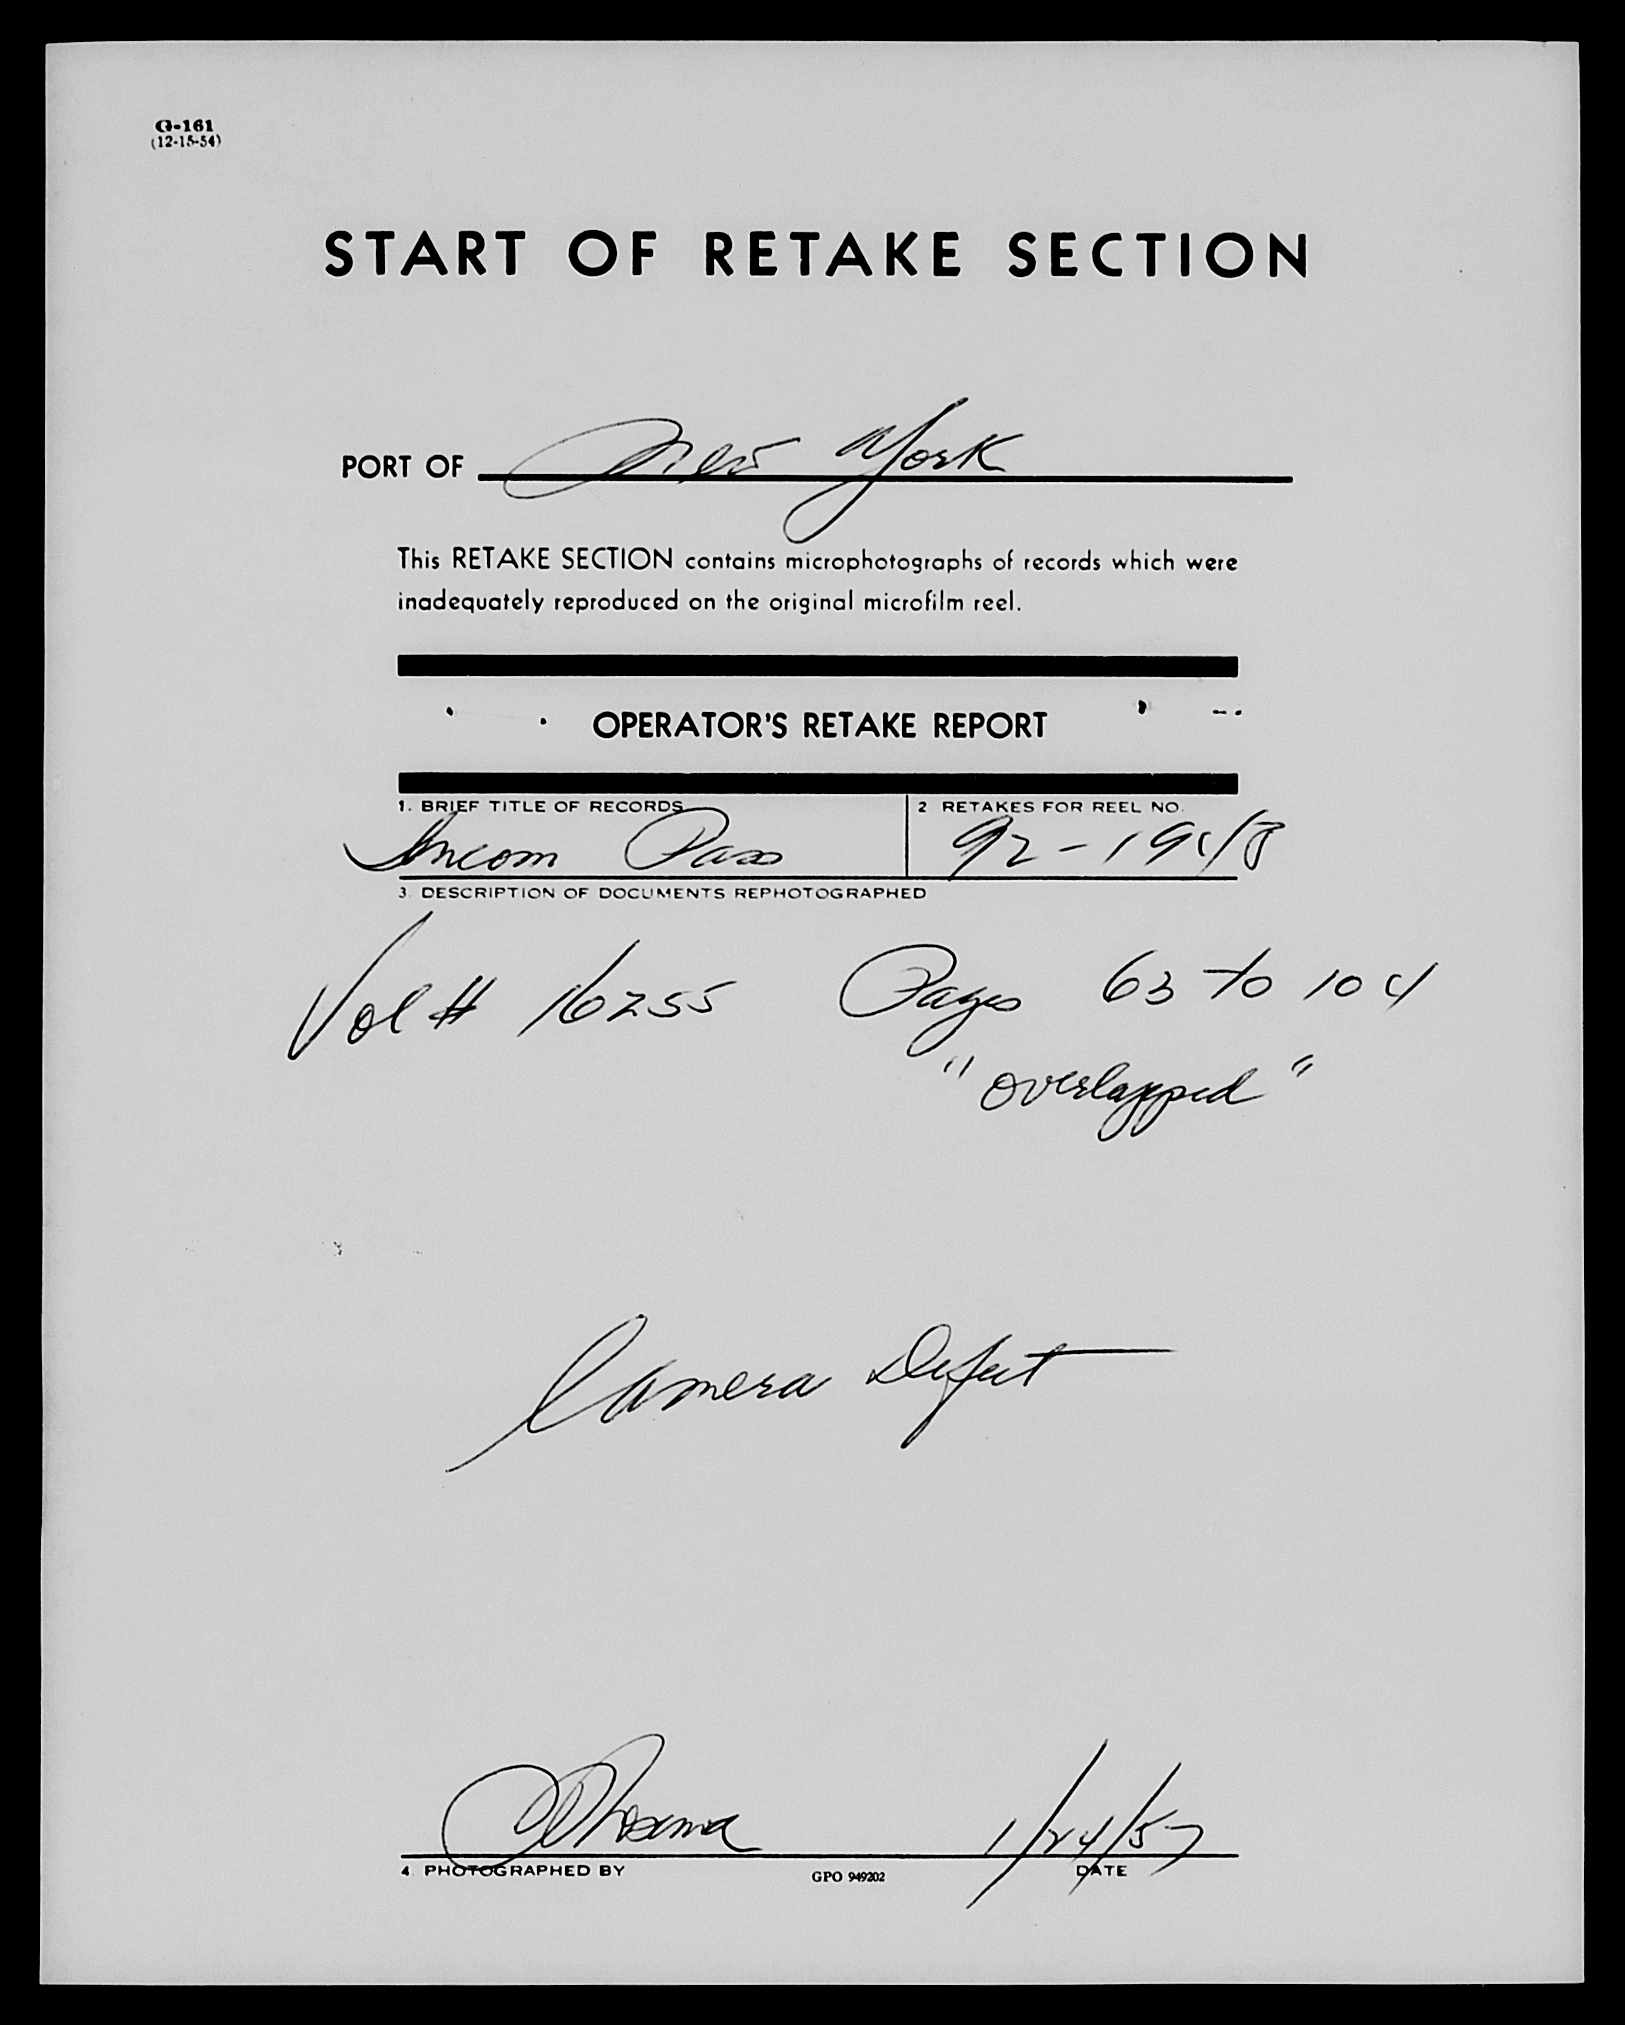 G-161
(12-15-54)
START OF RETAKE SECTION
PORT OF New York
This RETAKE SECTION contains microphotographs of records which were
inadequately reproduced on the original microfilm reel.
OPERATOR'S RETAKE REPORT
1. BRIEF TITLE OF RECORDS 2 RETAKES FOR REEL NO.
Incom Pass 92-1948
3. DESCRIPTION OF DOCUMENTS REPHOTOGRAPHED
Vol # 16255 Pages 63 to 104
"overlapped"
Camera Defect
1/24/57
4. PHOTOGRAPHED BY GPO 949202 DATE